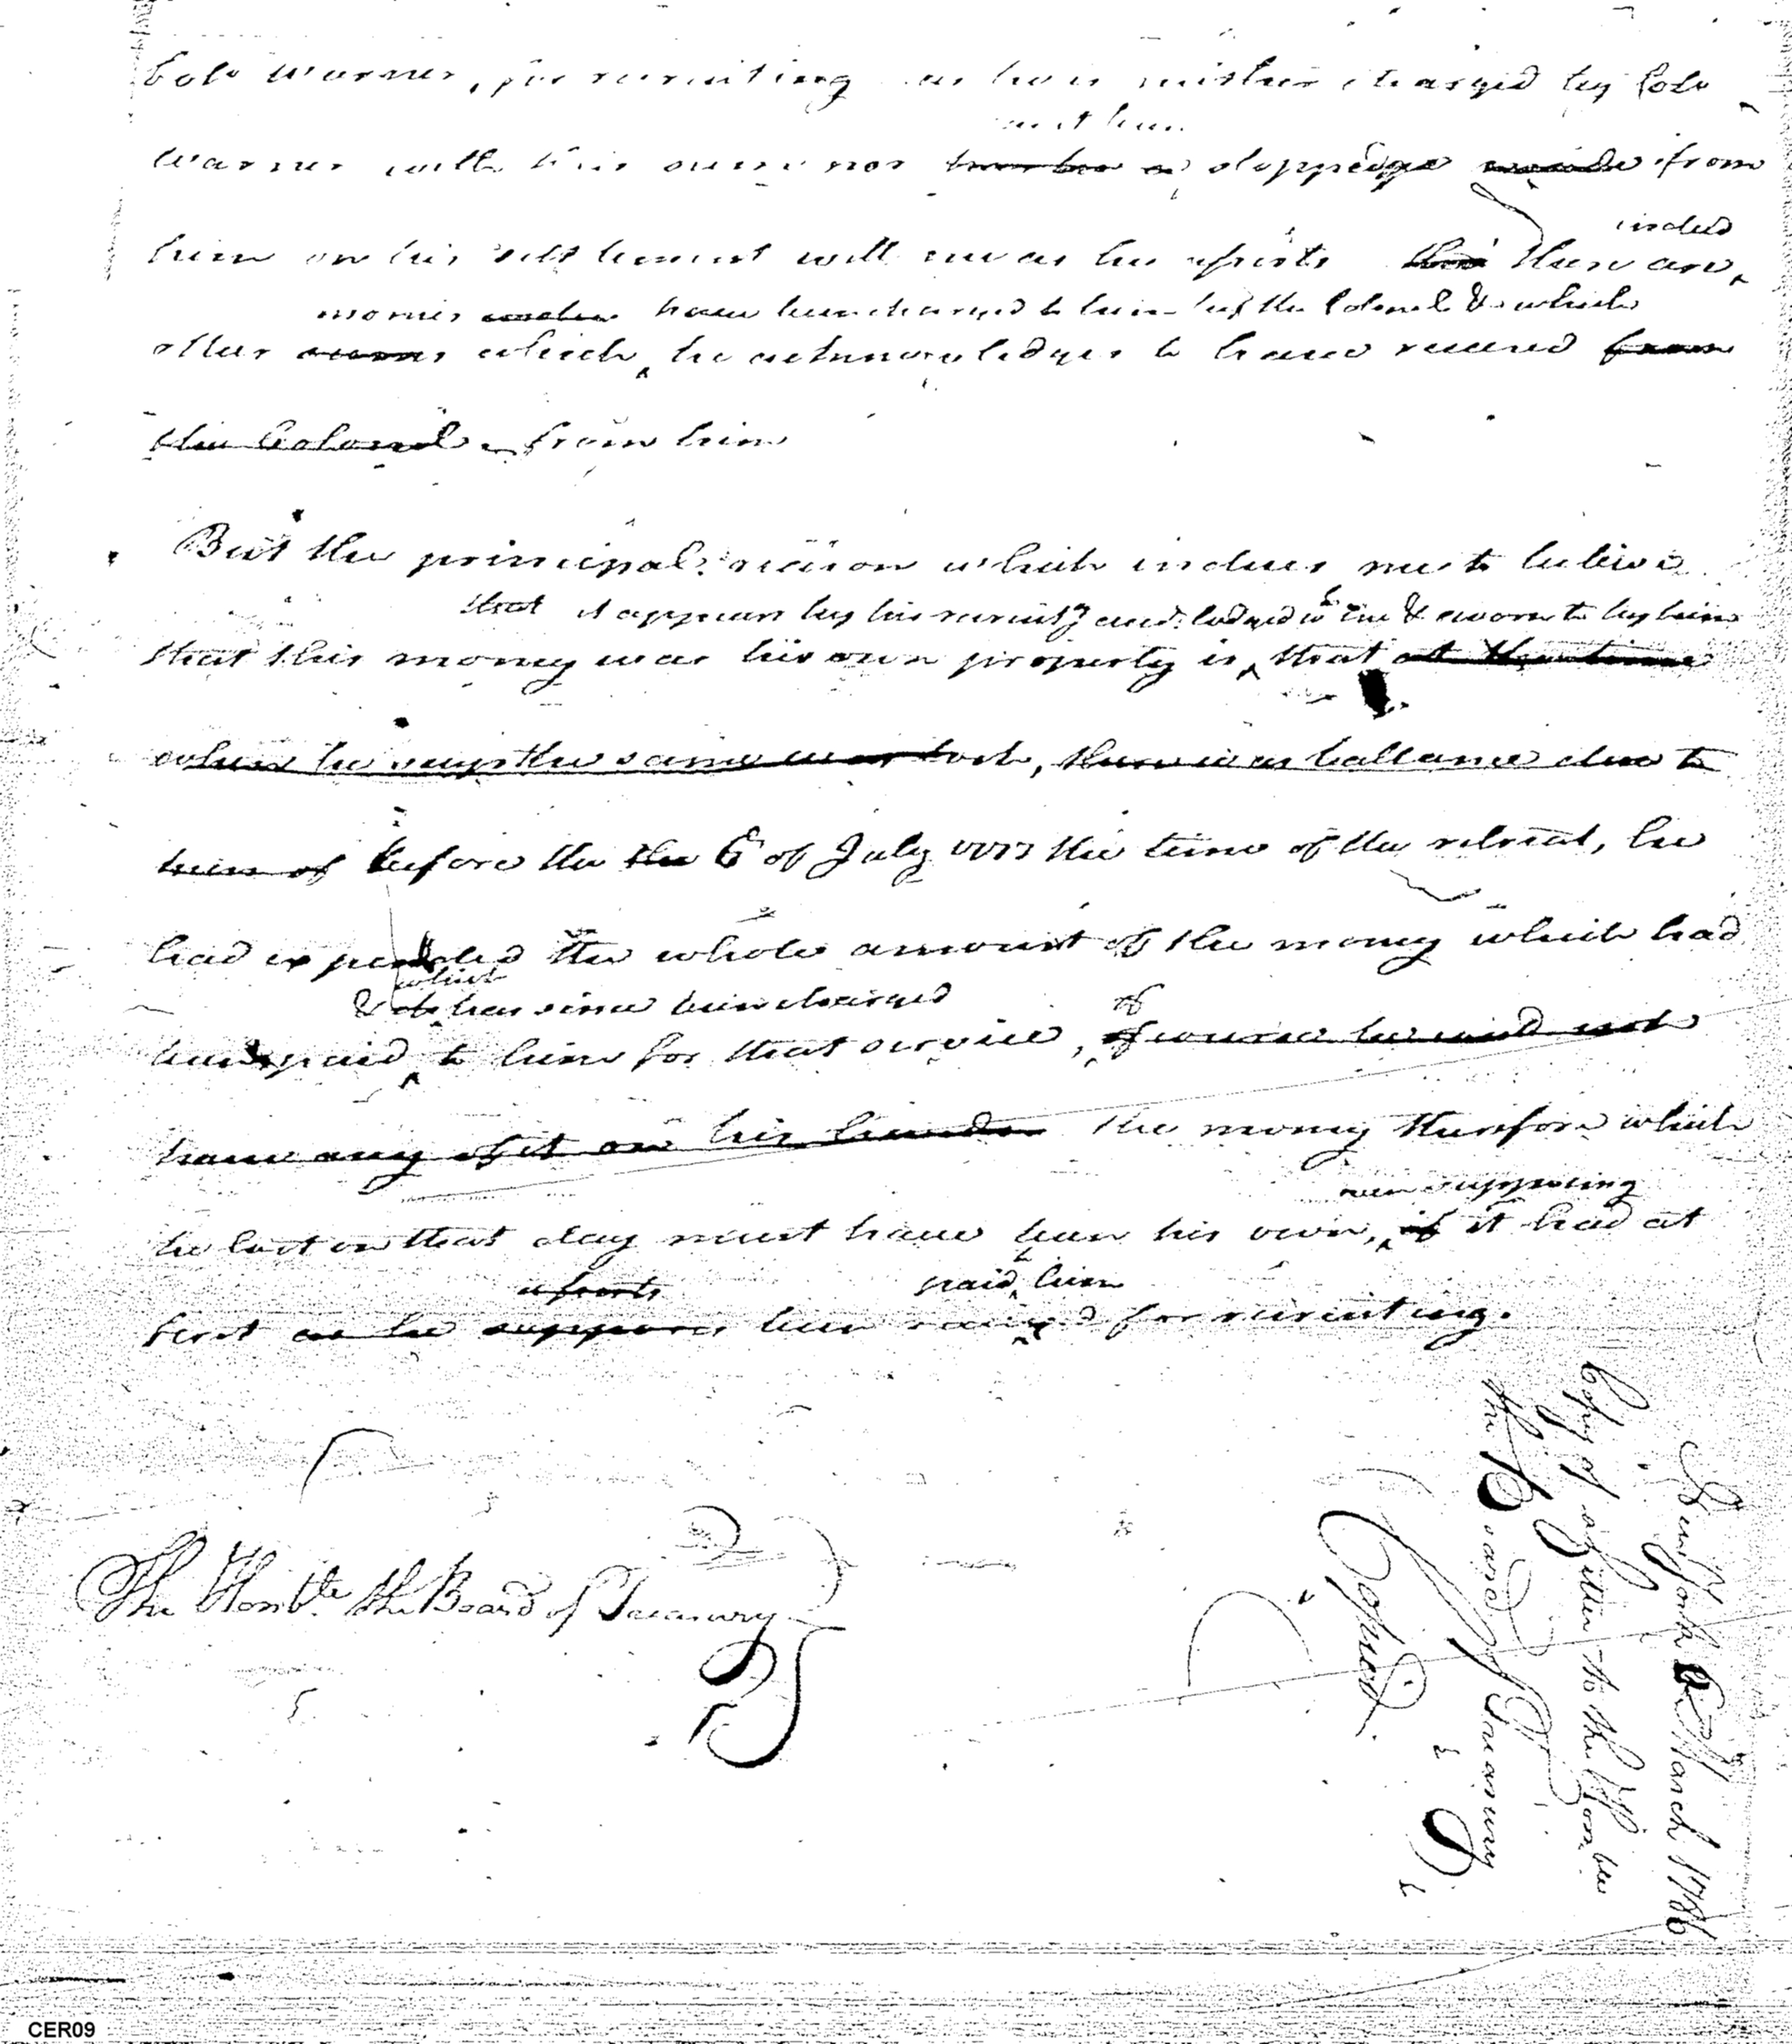 Colo Warner, for recruiting as he is neither charged by Colo
Warner with this sum nor stoppage made from
him on his settlement will me as he asserts this there are,
indeed
monies have been charged to him by the Colonel & which
other sums which, he acknowledges to have received from
the Colonel from him
But the principal reason which induces me to believe
that it appears by his recruitg acct. lodged w me & sworn to by him
that this money was his own property is, that at the time
when he says the same was lost, there was ballance due to
him of before the the 6 of July 1777 the time of the retreat, he
had expended the whole amount of the money which had
which
& has since been charged
of
been paid to him for that service, of course he could not
have any of it on his hands the money therefore which
even supposing
he lost on that day must have been his own, if it had at
asserts
paid, him
first as he supposes been for recruiting.
The Honble. the Board of Treasury
New York March 1786
Copy of a Letter to the Honble
the Board of Treasury
Copied
CER09